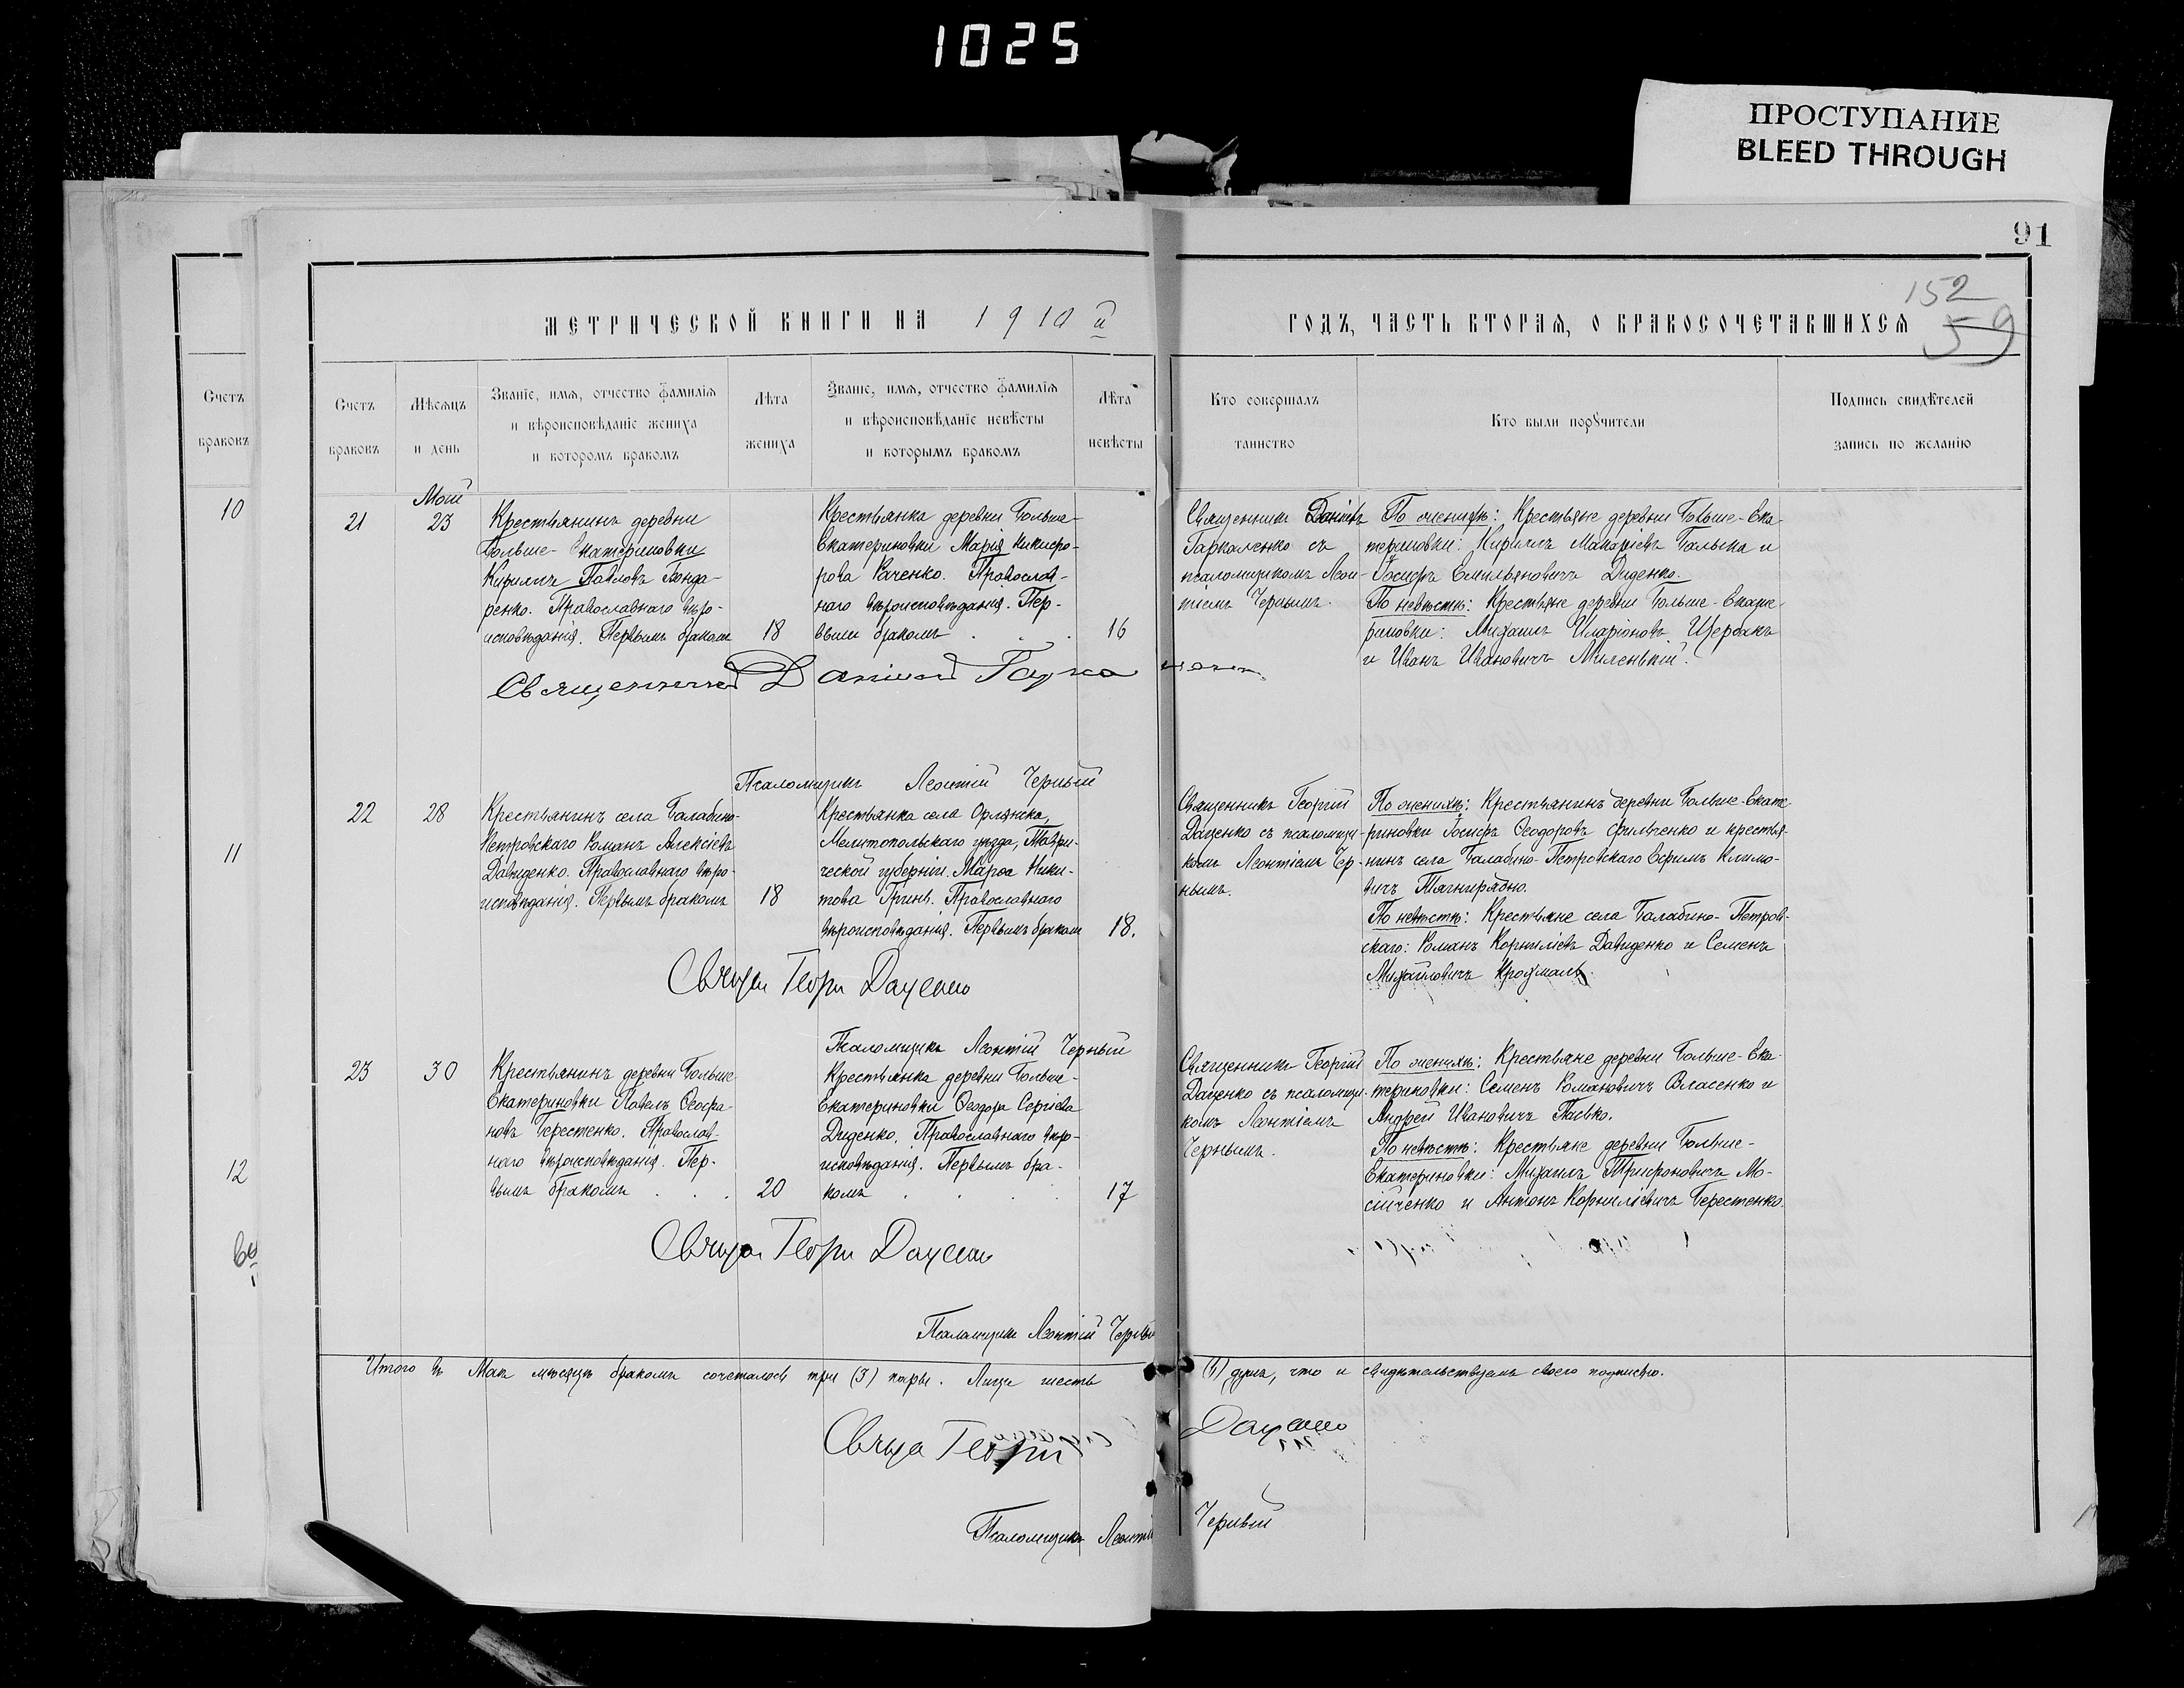 1025
ПРОСТУПАНИЕ
BLEED THROUGH
91
152
59
МЕТРИЧЕСКОЙ КНИГИ НА 1910й ГОДЪ, ЧАСТЬ ВТОРАЯ, О БРАКОСОЧЕТАВШИХСЯ
Счетъ
браковъ
10
11
12
Счетъ
браковъ
Мѣсяцъ
и день
Званіе, имя, отчество фамилія
и вѣроисповѣданіе жениха
и которомъ бракомъ
Лѣта
жениха
Званіе, имя, отчество фамилія
и вѣроисповѣданіе невѣсты
и которымъ бракомъ
Лѣта
невѣсты
Кто совершалъ
таинство
Кто были поручители
Подпись свидѣтелей
запись по желанію
Май
21
23
Крестьянинъ деревни
Больше-Екатериновки
Кириллъ Павловъ Бонда-
ренко. Православнаго вѣро-
исповѣданія. Первымъ бракомъ
18
Крестьянка деревни Больше-
Екатериновки Марія Никифо-
рова Раченко. Православ-
наго вѣроисповѣданія. Пер-
вымъ бракомъ
16
Священникъ Даніилъ
Гаркаленко съ
псаломщикомъ Леон-
тіемъ Чернымъ.
По женихѣ: Крестьяне деревни Больше-Ека-
териновки: Кириллъ Макаріевъ Балыка и
Іосифъ Емельяновичъ Диденко.
По невѣстѣ: Крестьяне деревни Больше-Екате-
риновки: Михаилъ Иларіоновъ Щербакъ
и Иванъ Ивановичъ Миленькій.
Священникъ Даніилъ
Псаломщикъ Леонтій Черный
22
28
Крестьянинъ села Балабино-
Петровскаго Романъ Алексіевъ
Давиденко. Православнаго вѣро-
исповѣданія. Первымъ бракомъ
18
Крестьянка села Орлянска,
Мелитопольскаго уѣзда, Таври-
ческой губерніи. Марѳа Ники-
това Гринь. Православнаго
вѣроисповѣданія. Первымъ бракомъ
18.
Священникъ Георгій
Даценко съ псаломщи-
комъ Леонтіемъ Чер-
нымъ.
По женихѣ: Крестьянинъ деревни Больше-Екате-
риновки Іосифъ Ѳеодоровъ Фильченко и крестья-
нинъ села Балабино-Петровскаго Ефимъ Климо-
вичъ Тягнирядно.
По невѣстѣ: Крестьяне села Балабино-Петров-
скаго: Романъ Корниліевъ Давиденко и Семенъ
Михайловичъ Крохмаль.
Священ Георгі Даценко
Псаломщикъ Леонтій Черный
23
30
Крестьянинъ деревни Больше
Екатериновки Павелъ Ѳеофа-
новъ Берестенко. Православ-
наго вѣроисповѣданія. Пер-
вымъ бракомъ
20
Крестьянка деревни Больше-
Екатериновки Ѳеодора Сергіева
Диденко. Православнаго вѣро-
исповѣданія. Первымъ бра-
комъ
17
Священникъ Георгій
Даценко съ псаломщи-
комъ Леонтіемъ
Чернымъ.
По женихѣ: Крестьяне деревни Больше-Ека-
териновки: Семенъ Романовичъ Власенко и
Андрей Ивановичъ Пасько.
По невѣстѣ: Крестьяне деревни Больше-
Екатериновки: Михаилъ Трифоновичъ Мо-
сійченко и Антонъ Корниліевичъ Берестенко.
Свящ Георгі Даценко
Псаломщикъ Леонтій Черный
Итого въ Маѣ мѣсяцѣ бракомъ сочеталось три (3) пары. Лицъ шесть (6) душъ, что и свидѣтельствуемъ своею подписью.
Свящ Георгі Даценко
Псаломщикъ Леонтій Черный